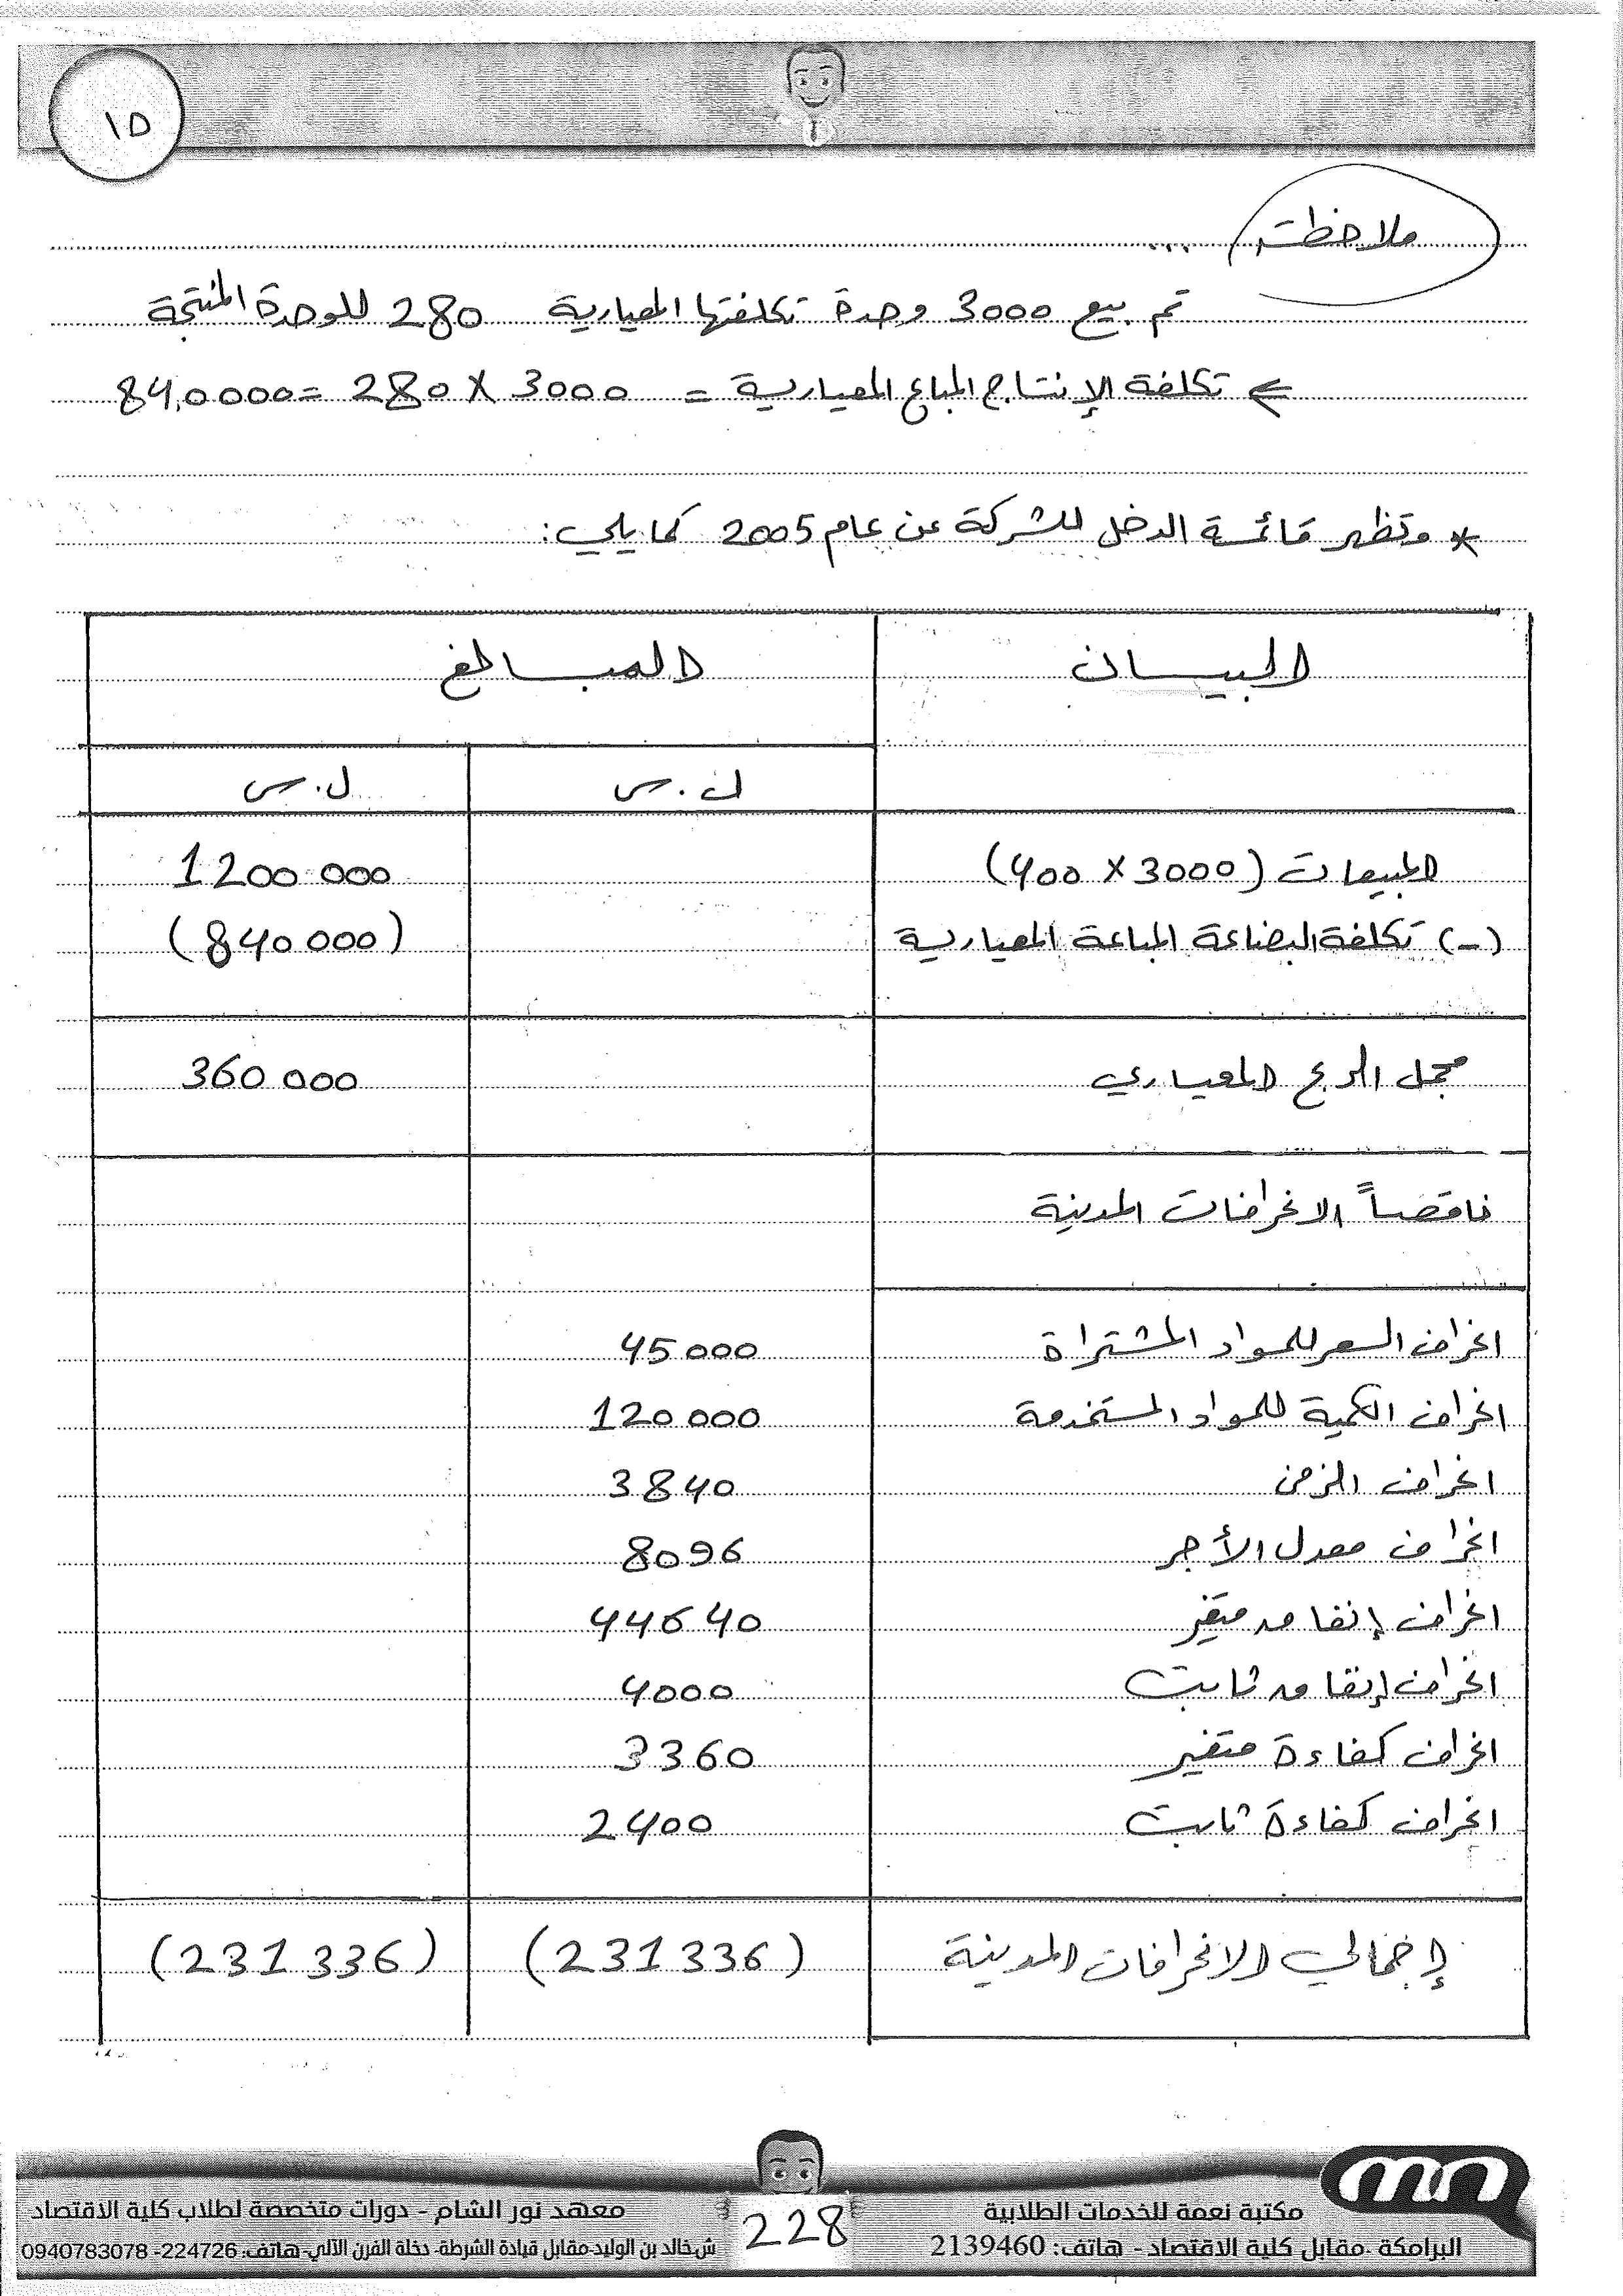 ١٥
ملاحظة ...
تم بيع 3000 وحدة تكلفتها المعيارية 280 للوحدة المنتجة
⇐ تكلفة الإنتاج المباع المعيارية = 3000 × 280 = 840000
* وتظهر قائمة الدخل للشركة عن عام 2005 كما يلي:
البيان المبالغ
ل.س ل.س
المبيعات (3000 × 400) 1200 000
(-) تكلفة البضاعة المباعة المعيارية (840 000)
مجمل الربح المعياري 360 000
ناقصاً الانحرافات المدينة
انحراف السعر للمواد المشتراة 45 000
انحراف الكمية للمواد المستخدمة 120 000
انحراف الزمن 3840
انحراف معدل الأجر 8096
انحراف إنفاق متغير 44640
انحراف إنفاق ثابت 4000
انحراف كفاءة متغير 3360
انحراف كفاءة ثابت 2400
إجمالي الانحرافات المدينة (231 336) (231 336)
مكتبة نعمة للخدمات الطلابية
البرامكة - مقابل كلية الاقتصاد - هاتف: 2139460
228
معهد نور الشام - دورات متخصصة لطلاب كلية الاقتصاد
ش.خالد بن الوليد-مقابل قيادة الشرطة- دخلة الفرن الآلي-هاتف: 224726- 0940783078